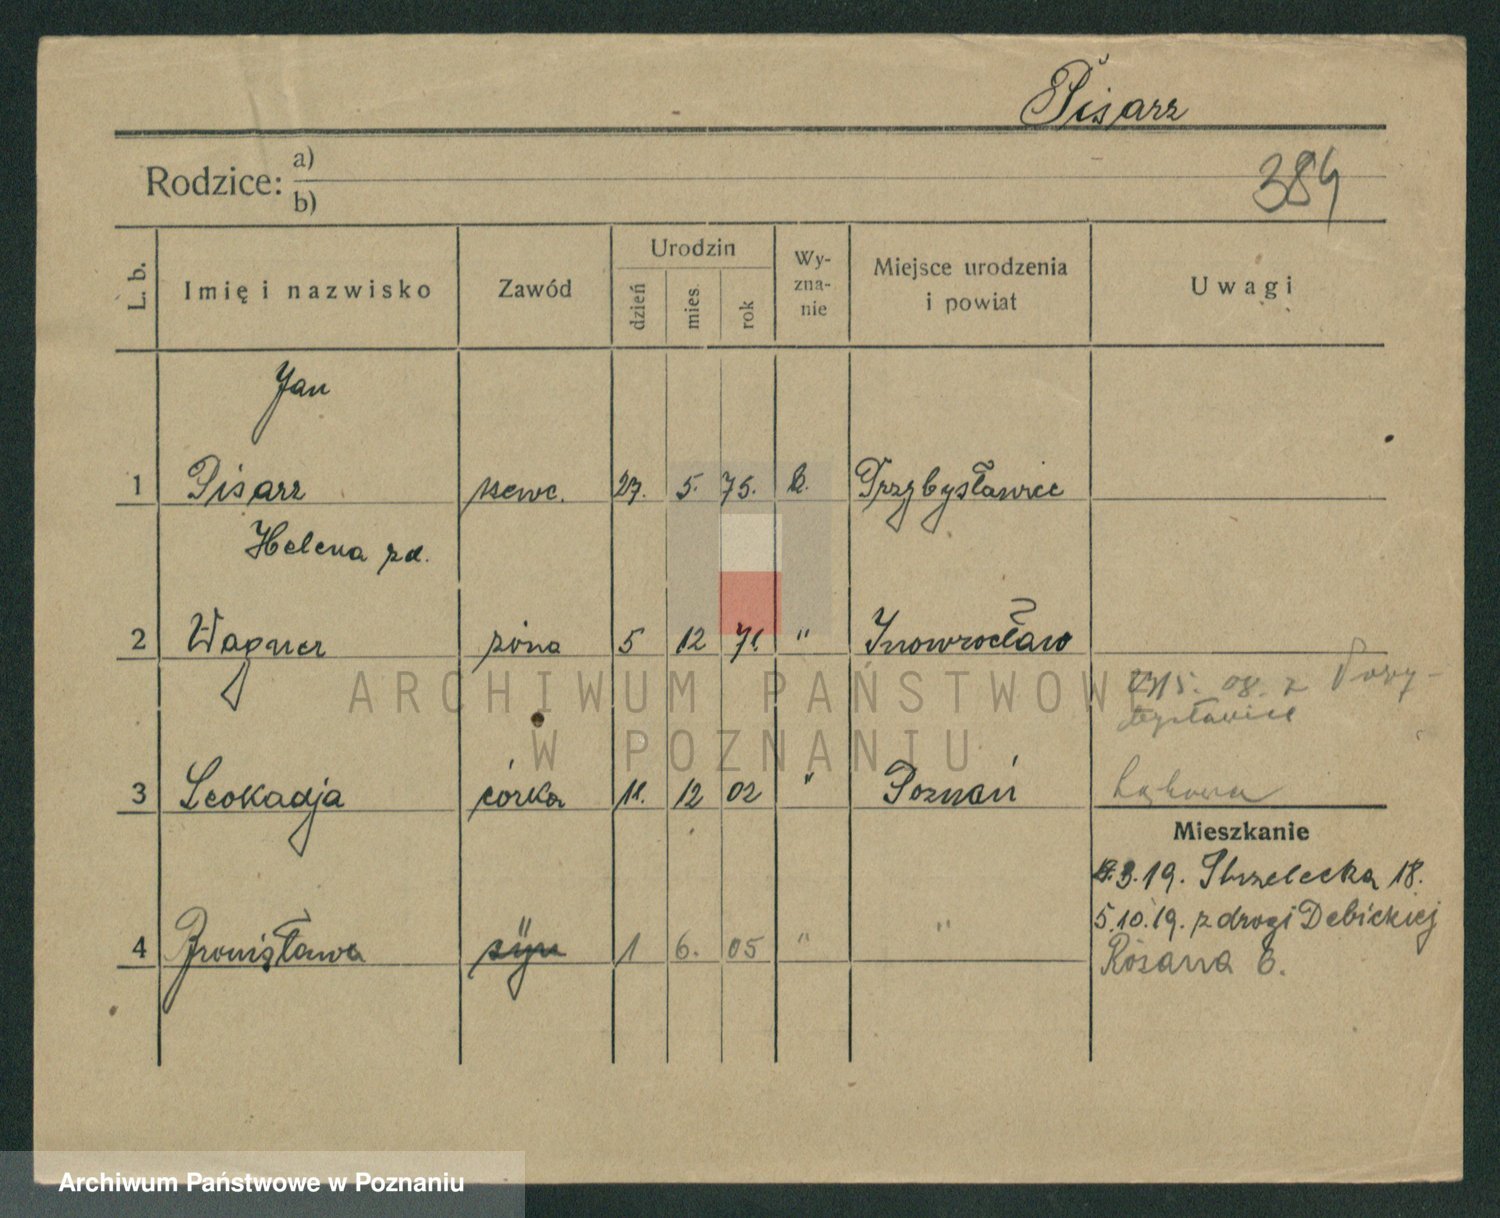 Pisarz
Rodzice: a)
b)
384
L. b.
Imię i nazwisko
Zawód
Urodzin
dzień
mies.
rok
Wy-
zna-
nie
Miejsce urodzenia
i powiat
Uwagi
Jan
1 Pisarz szewc. 27. 5. 75. k. Przybysławice
Helena zd.
2 Wagner żóna 5 12 71. " Inowrocław
15. 08. z
3 Leokadja córka 11. 12 02 " Poznań
Mieszkanie
3.19. Strzelecka 18.
5.10.19. z drogi Debickiej
4 Bronisława syn 1 6. 05 " "
Rózana 6.
ARCHIWUM PAŃSTWOWE
W POZNANIU
Archiwum Państwowe w Poznaniu